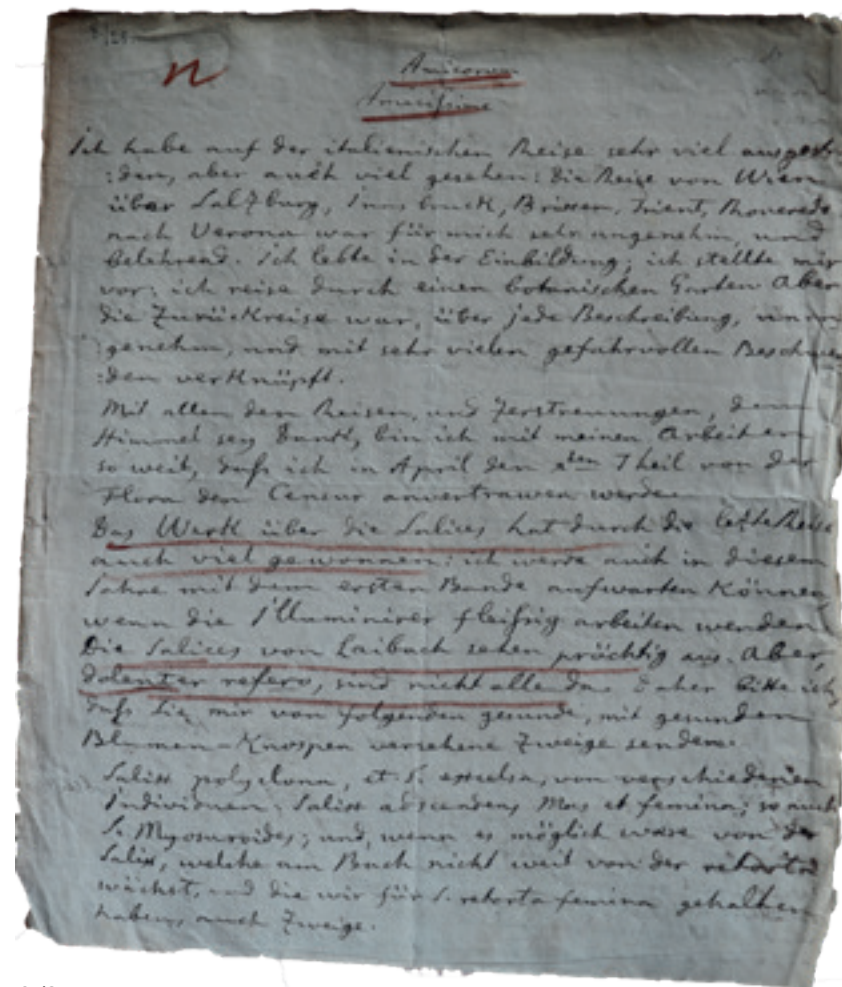 n
Amicorum
Amicissime
Ich habe auf der italienischen Reise sehr viel ausgest
:den, aber auch viel gesehen: die Reise von Wien
über Salzburg, Innsbruck, Brixen, Trient, Roveredo
nach Verona war für mich sehr angenehm, und
belehrend. Ich lebte in der Einbildung; ich stellte mir
vor: ich reise durch einen botanischen Garten Aber
die Zurückreise war, über jede Beschreibung, unan
:genehm, und mit sehr vielen gefahrvollen Beschwer
:den verknüpft.
Mit allen den Reisen, und Zerstreuungen, dem
Himmel sey Dank, bin ich mit meinen Arbeiten
so weit, daß ich in April den 2ten Theil von der
Flora der Censur anvertrauen werde.
Das Werk über die Salices hat durch die letzte Reise
auch viel gewonnen: ich werde auch in diesem
Jahre mit dem ersten Bande aufwarten können,
wenn die Illuminirer fleißig arbeiten werden
Die Salices von Laibach sehen prächtig aus. Aber,
dolenter refero, sind nicht alle da. Daher bitte ich,
daß Sie mir von folgenden gesunde, mit gesunden
Blumen-Knospen versehene Zweige senden:
Salix polyclona, et S. excelsa, von verschiedenen
Individuen. Salix adscendens Mas et femina; so auch
S. Myosuroides; und, wenn es möglich wäre von der
Salix, welche am Bach nicht weit von der retorta
wächst, und die wir für S. retorta femina gehalten
haben, auch Zweige.